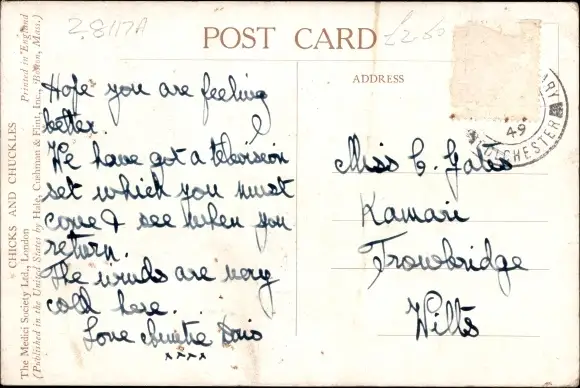 28117A
POST CARD
£2.50
ADDRESS
CHICKS AND CHUCKLES
The Medici Society Ltd., London
Printed in England
(Published in the United States by Hale, Cushman & Flint, Inc., Boston, Mass.)
Hope you are feeling
better.
We have got a television
set which you must
come & see when you
return.
The winds are very
cold here.
Love Auntie Doris
xxxx
49
CHESTER
Miss C. Gates
Kamari
Trowbridge
Wilts